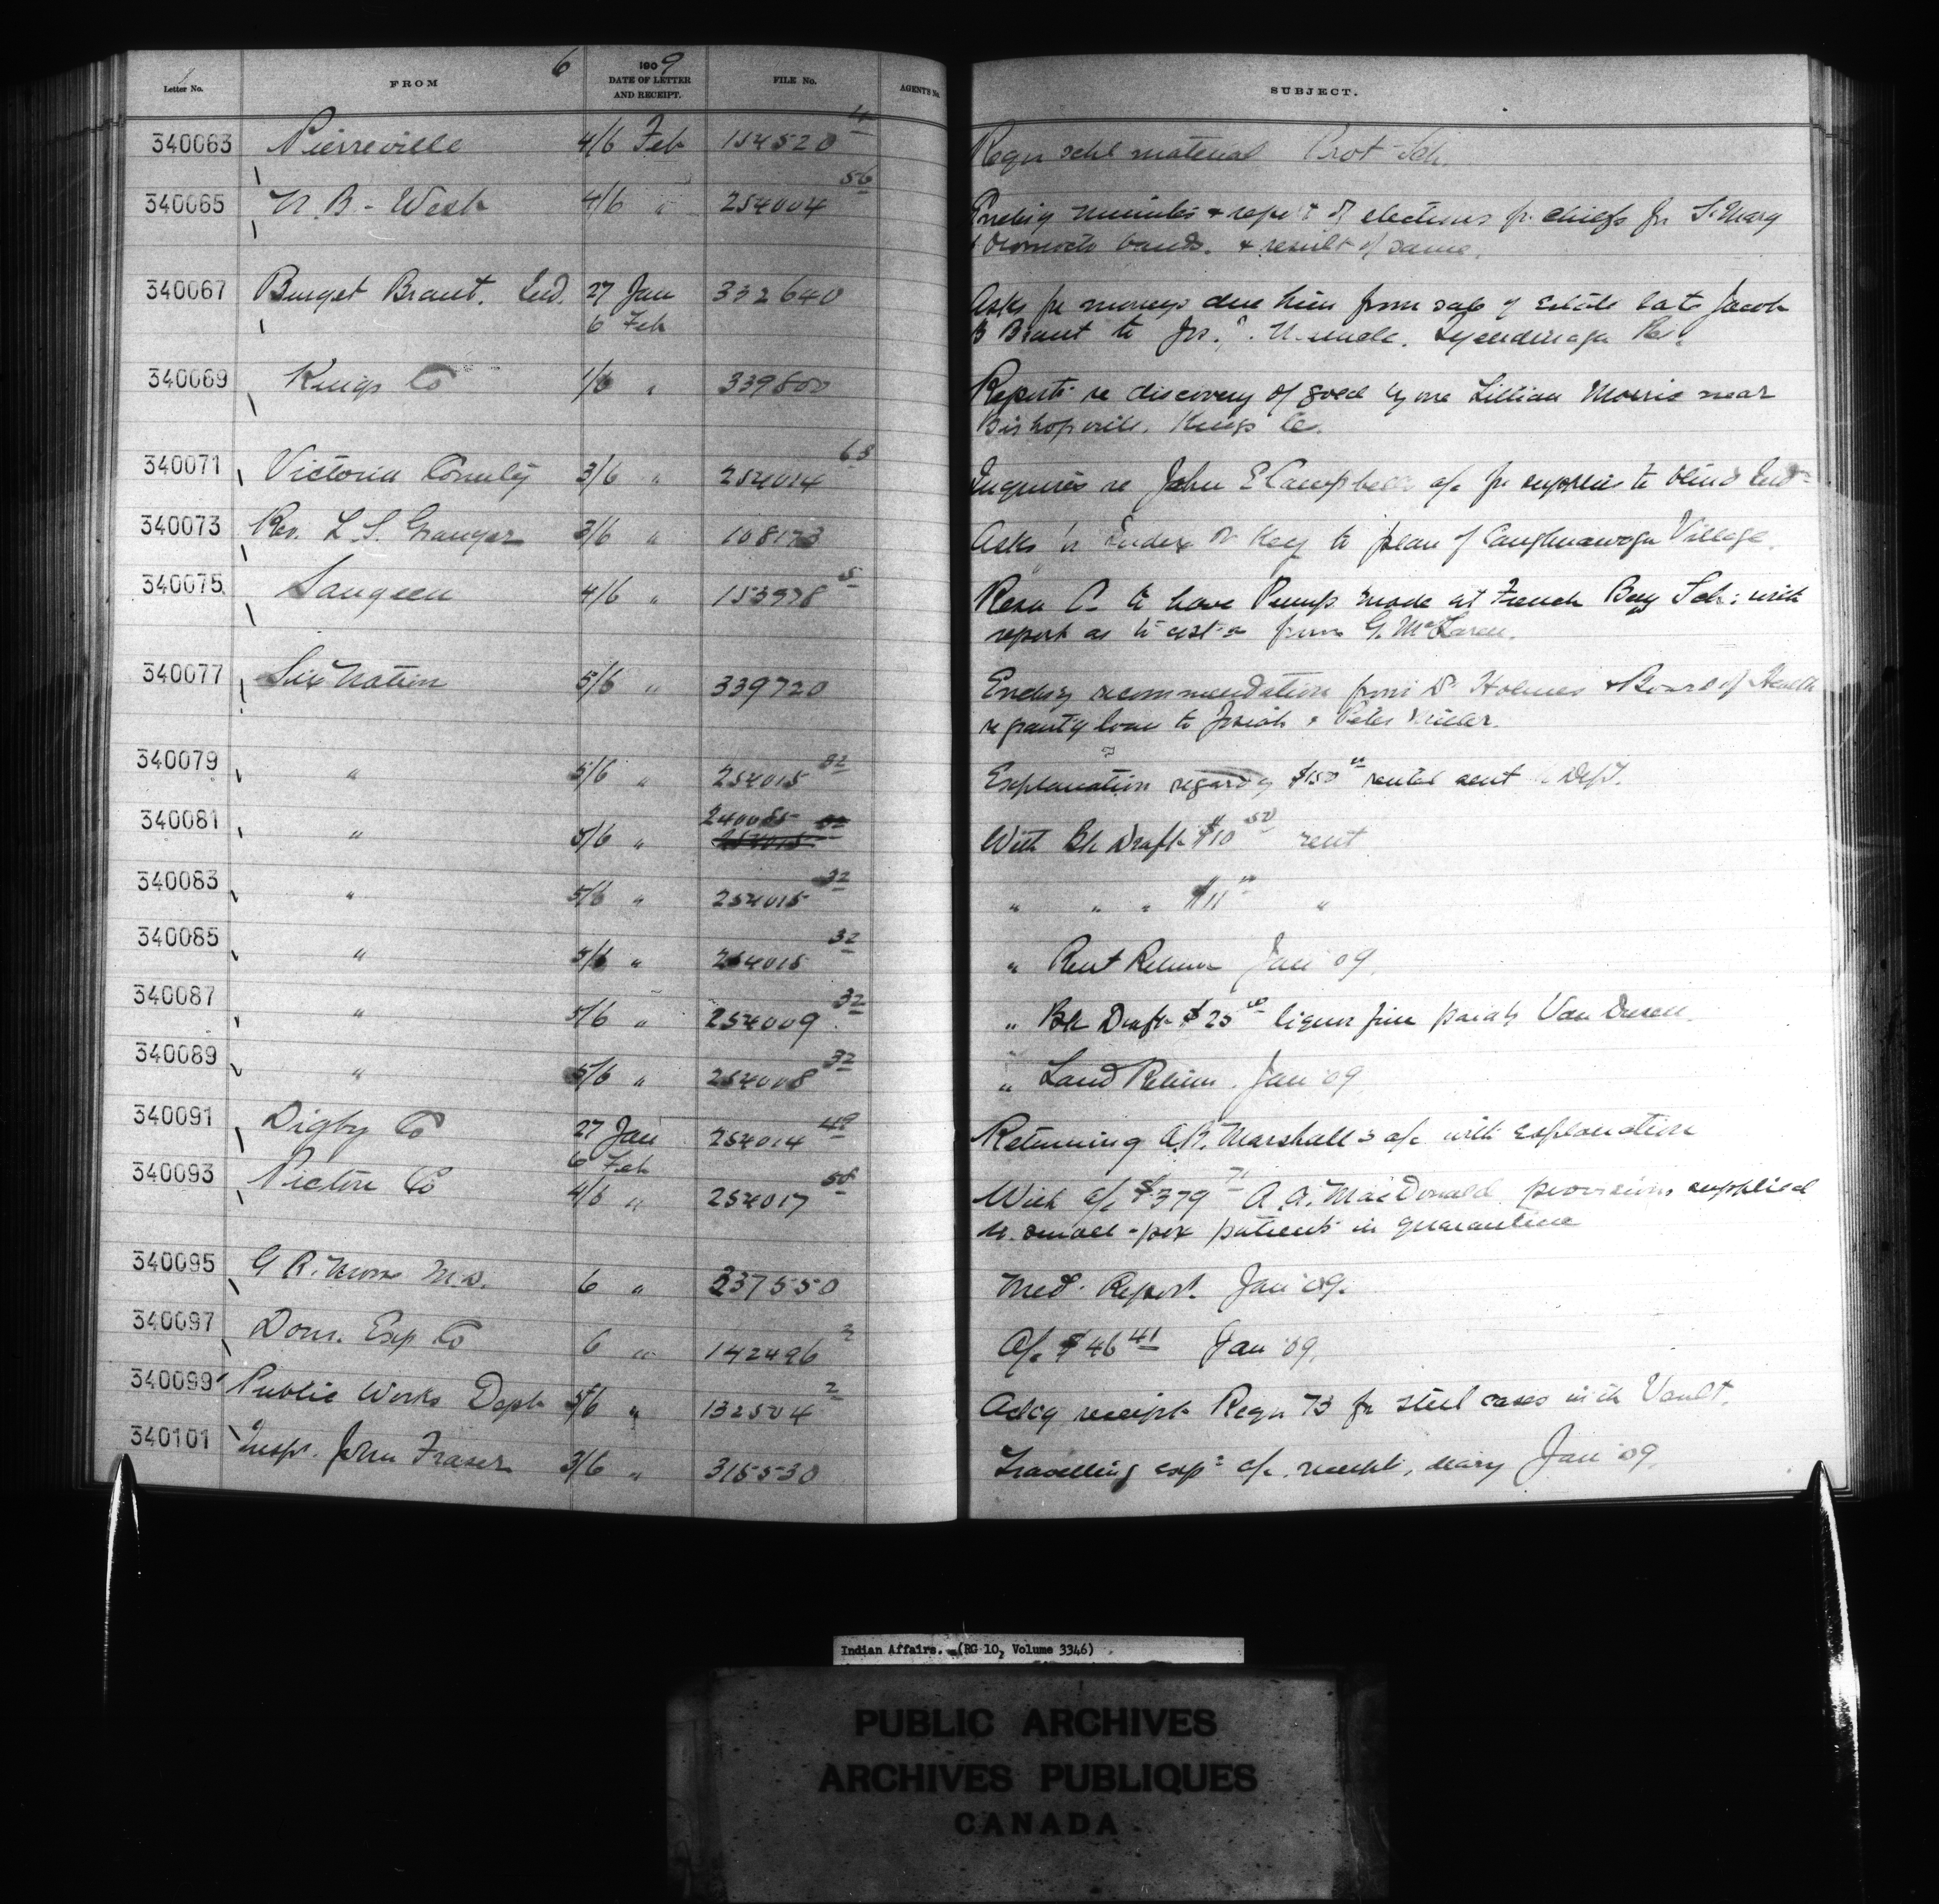 6 1909
Letter No. FROM DATE OF LETTER AND RECEIPT. FILE No. AGENT'S No. SUBJECT.
340063 Pierreville 4/6 Feb 154520 Reqn schl material Prot Sch.
340065 N.B. - West 4/6 " 254004 56 Encl'g minutes & report of elections fr. chiefs for St Mary
& Oromocto bands. & result of same.
340067 Burget Brant. Ind. 27 Jan 332640 Asks for moneys due him from sale of Estate late Jacob
6 Feb B Brant to Jos. Tyendinaga Res.
340069 Kings Co 1/6 " 339800 Reports re discovery of gold by one Lillian Morris near
Bishopville, Kings Co.
340071 Victoria County 3/6 " 254014 63 Inquires re John E Campbell a/c for supplies to blind Ind
340073 Rev. L.S. Granger 3/6 " 108173 Asks Index or Key to plan of Caughnawaga Village.
340075 Saugeen 4/6 " 153978 5 Resn C. to have Pump made at French Bay Sch: with
report as to cost from G. McLaren.
340077 Six Nation 5/6 " 339720 Encl'g recommendation from Dr Holmes & Board of Health
re grant'g loan to Josiah & Peter
340079 " 5/6 " 254015 32 Explanation regard'g $150 rental sent Dept.
340081 " 5/6 " 240065 With Bk Draft $10 50 rent
340083 " 5/6 " 254015 32 " " " $11 "
340085 " 5/6 " 254015 32 " Rent Return Jan '09.
340087 " 5/6 " 254009 32 " Bk Draft $25 liquor fine Van Dusen.
340089 " 5/6 " 254008 32 " Land Return. Jan '09
340091 Digby Co 27 Jan 254014 49 Returning A.R. Marshall's a/c with explanation
6 Feb
340093 Pictou Co 4/6 " 254017 58 With a/c $379 71 A.A. MacDonald provisions supplied
to small-pox patients in quarantine
340095 G R. Morse M.D. 6 " 237550 Med. Report. Jan '09.
340097 Dom. Exp Co 6 " 142496 2 A/c $46 41 Jan '09.
340099 Public Works Dept 5/6 " 132504 2 Ackg receipt Reqn 73 for steel cases in the Vault.
340101 Inspr. John Fraser 3/6 " 315530 Travelling exps a/c. receipts, diary Jan '09.
Indian Affairs. (RG 10, Volume 3346)
PUBLIC ARCHIVES
ARCHIVES PUBLIQUES
CANADA